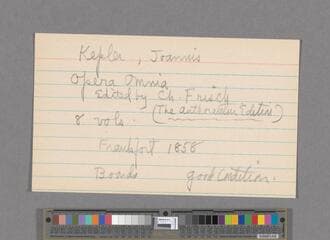 Kepler, Joannis
Opera Omnia
Edited by Ch. Frisch
(The authoritative Edition)
8 vols.
Frankfort 1858
Boards good Condition.